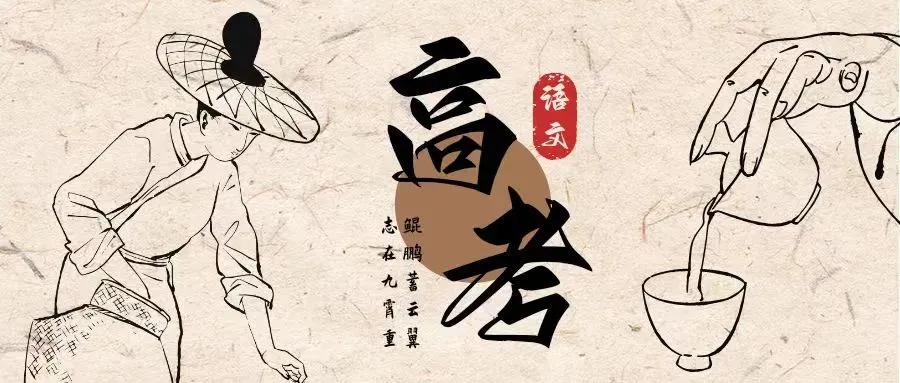 高考
语文
鲲鹏蓄云翼
志在九霄重